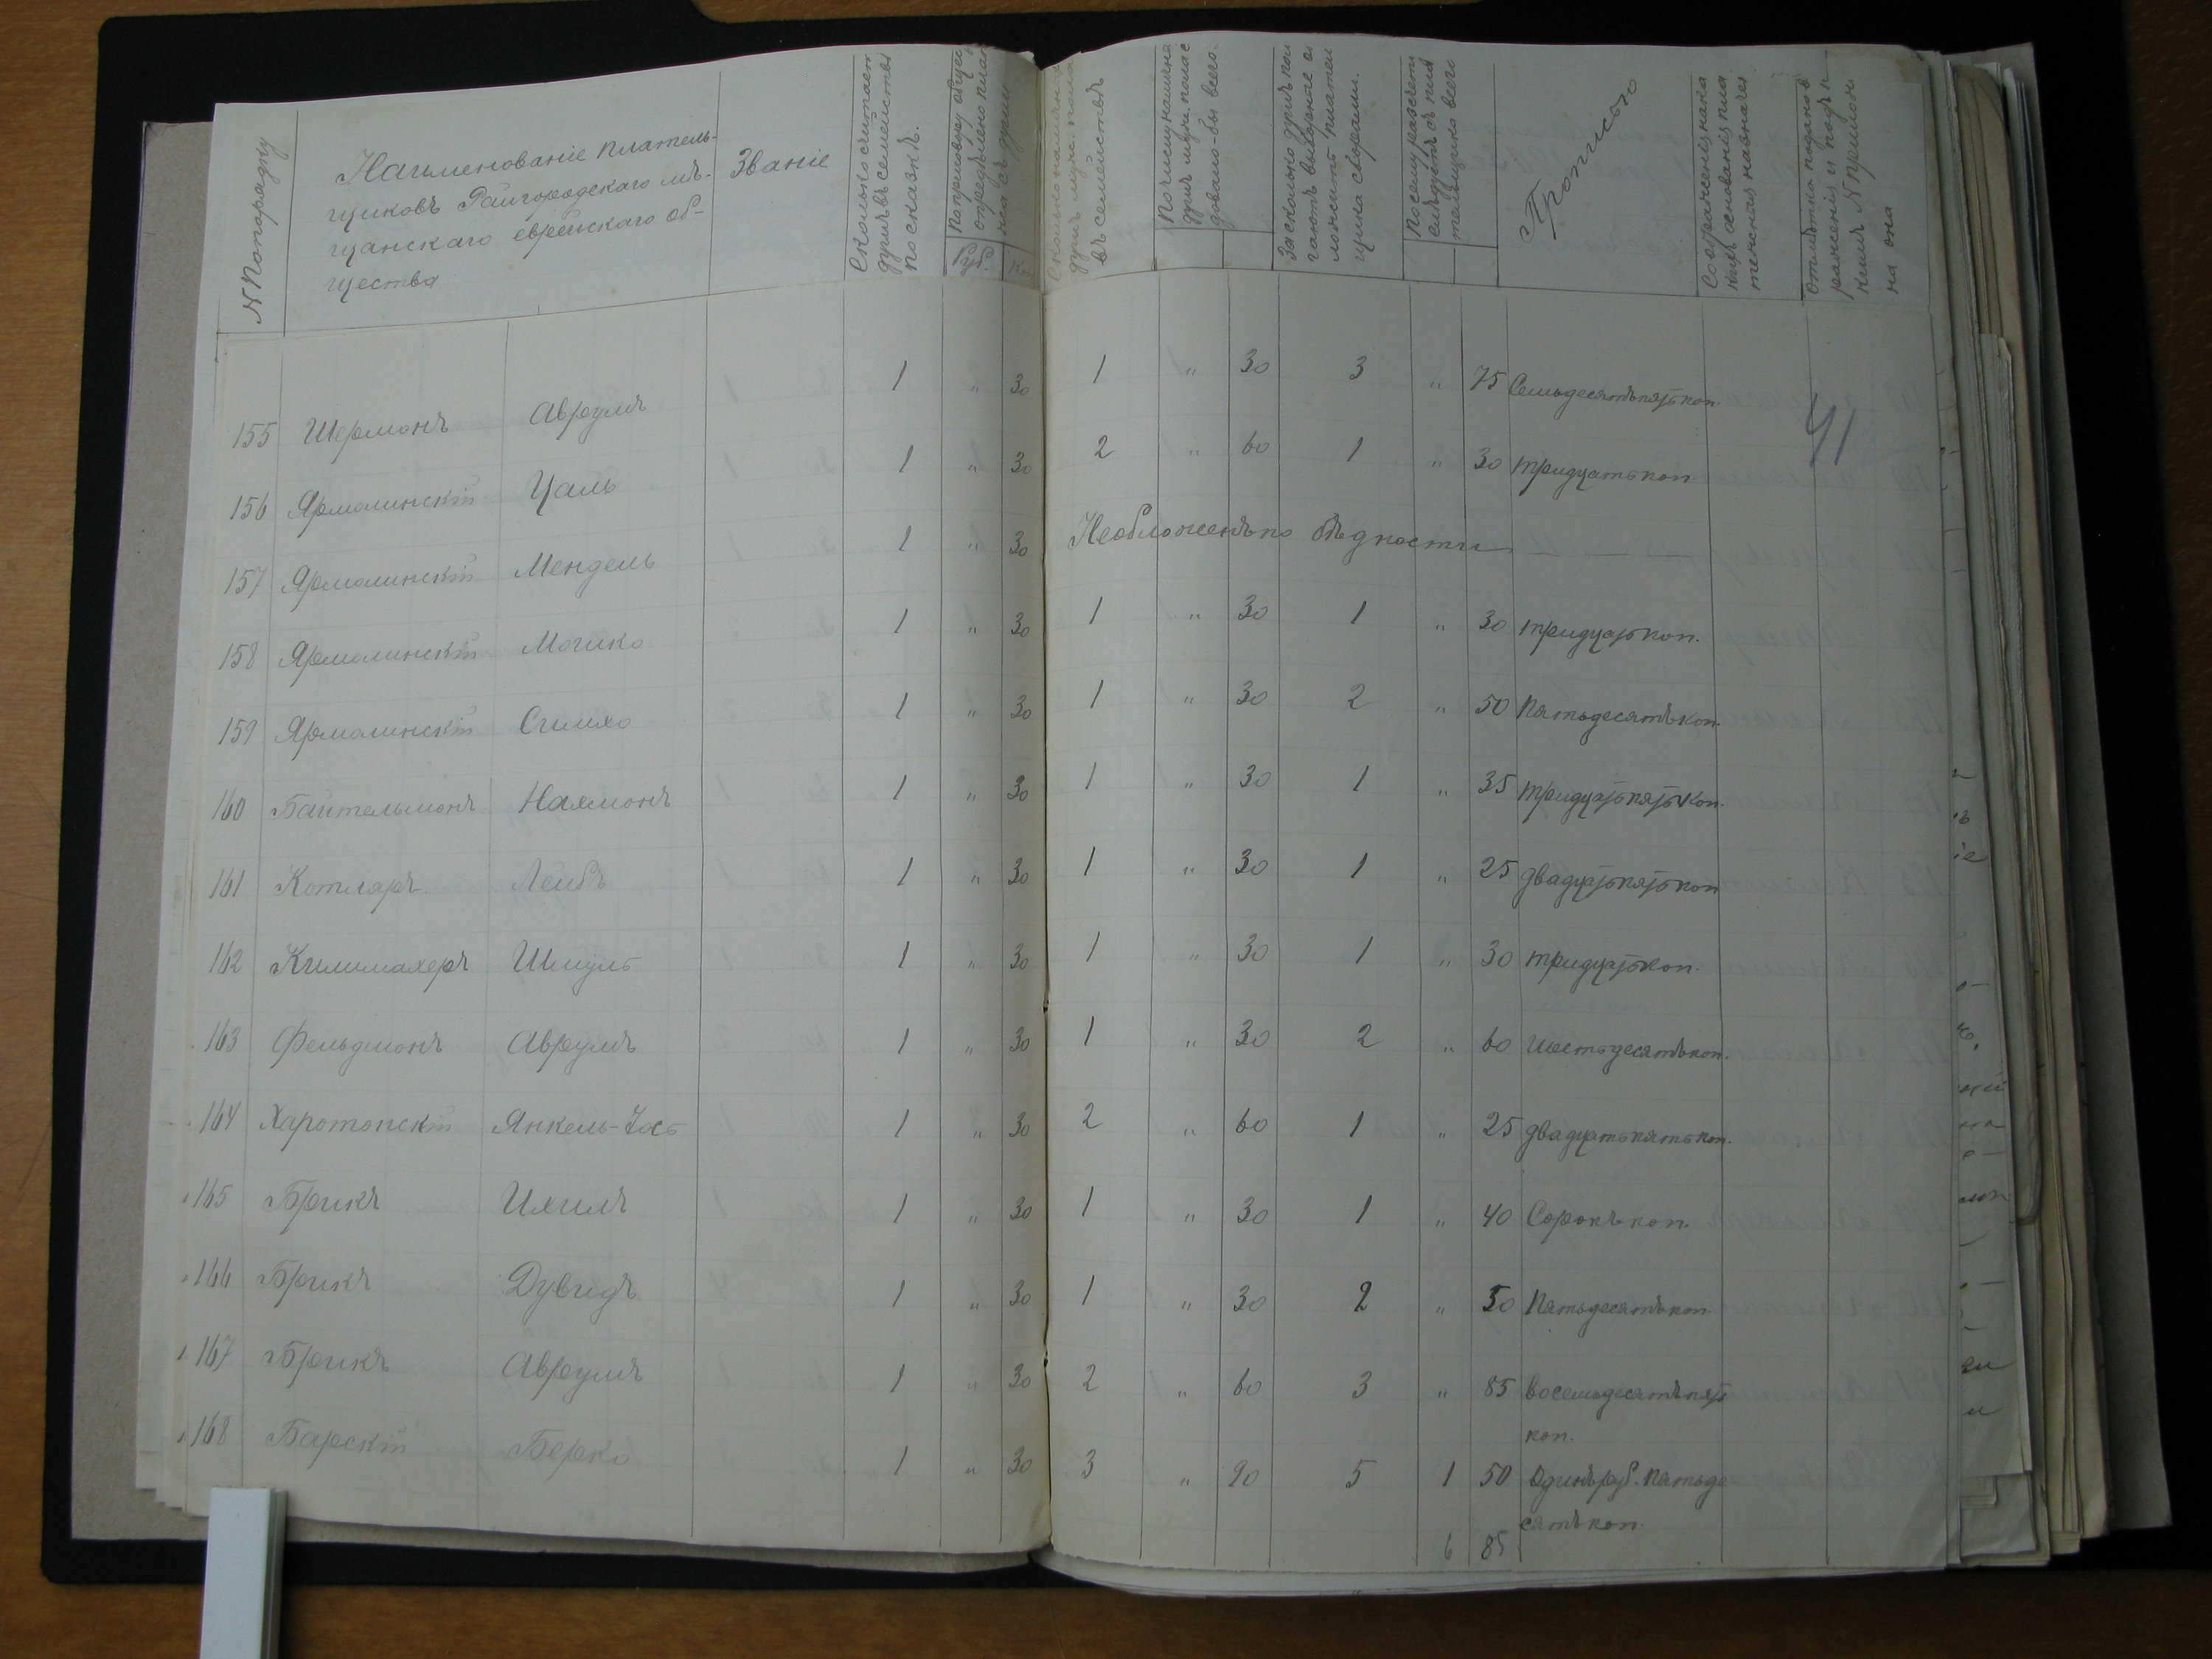 № По порядку
Наименованіе платель-
щиковъ Райгородского мѣ-
щанскаго еврейскаго об-
щества
Званіе
Сколько считает
душъ въ семействѣ
по сказкѣ.
По приговору общес
опредѣлено плат
Руб. Коп
въ семействѣ
По числу налична
душъ муж. пола с
довало-бы всего.
За сколько душъ пол
лежитъ плател
щика сборами.
По сему разсчету
слѣдуетъ съ пла
тельщика всего
Прописью
Соображенія на ка
кихъ основанія пла
теженія назначен
Отмѣтка подано в
раженія и подъ к
кимъ № приложе
на она
41
155 Шермонъ Аврумъ 1 " 30 1 " 30 3 " 75 Семьдесятъ пять коп.
156 Ярмолинскій Цаль 1 " 30 2 " 60 1 " 30 тридцать коп
157 Ярмолинскій Мендель 1 " 30 Необложенъ по бѣдности
158 Ярмолинскій Мошко 1 " 30 1 " 30 1 " 30 тридцать коп.
159 Ярмолинскій Симхо 1 " 30 1 " 30 2 " 50 Пятьдесятъ коп.
160 Байтельмонъ Нахмонъ 1 " 30 1 " 30 1 " 35 тридцать пять коп.
161 Котляръ Лейбъ 1 " 30 1 " 30 1 " 25 двадцать пять коп
162 Килимахеръ Шмуль 1 " 30 1 " 30 1 " 30 тридцать коп.
163 Фельдмонъ Аврумъ 1 " 30 1 " 30 2 " 60 шестьдесятъ коп.
164 Харотонскій Янкель-Іось 1 " 30 2 " 60 1 " 25 двадцать пять коп.
165 Брикъ Ихилъ 1 " 30 1 " 30 1 " 40 Сорокъ коп.
166 Брикъ Дувидъ 1 " 30 1 " 30 2 " 50 Пятьдесятъ коп
167 Брикъ Аврумъ 1 " 30 2 " 60 3 " 85 восемьдесятъ пять
коп.
168 Барскій Берко 1 " 30 3 " 90 5 1 50 Одинъ руб. пятьде
сятъ коп.
6 85